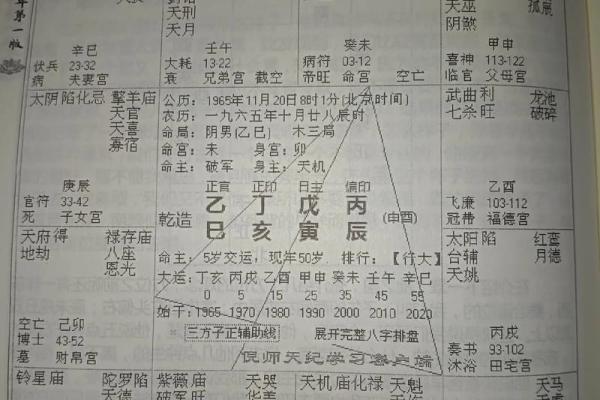 年第一版
天刑
天月
天巫 孤辰
阴煞
辛巳
伏兵 23-32
病 夫妻宫
壬午
大耗 13-22
衰 兄弟宫 截空
癸未
病符 03-12
帝旺 命宫 空亡
甲申
喜神 113-122
临官 父母宫
太阴陷化忌 擎羊庙
天官
天喜
寡宿
庚辰
官符 33-42
死 子女宫
公历：1965年11月20日8时1分(北京时间)
农历：一九六五年十月廿八辰时
命局：阴男(乙巳) 木三局
命宫：未 身宫：卯
命主：破军 身主：天机
正官 正印 日主 偏印
乙 丁 戊 丙
乾造 巳 亥 寅 辰 (申酉)
命主：5岁交运，现年50岁. 排行：【行大】
大运：丁亥 丙戌 乙酉 甲申 癸未 壬午 辛巳
0 5 15 25 35 45 55
始于：1965 1970 1980 1990 2000 2010 2020
三方子正辅助线 展开完整八字排盘
倪师天纪学习客户端
武曲利 龙池
七杀旺 破碎
乙酉
飞廉 103-112
冠带 福德宫
天府得 禄存庙
地劫 八座
恩光
空亡 己卯
博士 43-52
墓 财帛宫
太阳陷 红鸾
台辅 月德
天姚
丙戌
奏书 93-102
沐浴 田宅宫
铃星庙 陀罗陷
天德
紫微庙 天哭
破军旺 华盖
天机庙化禄 天魁
天马